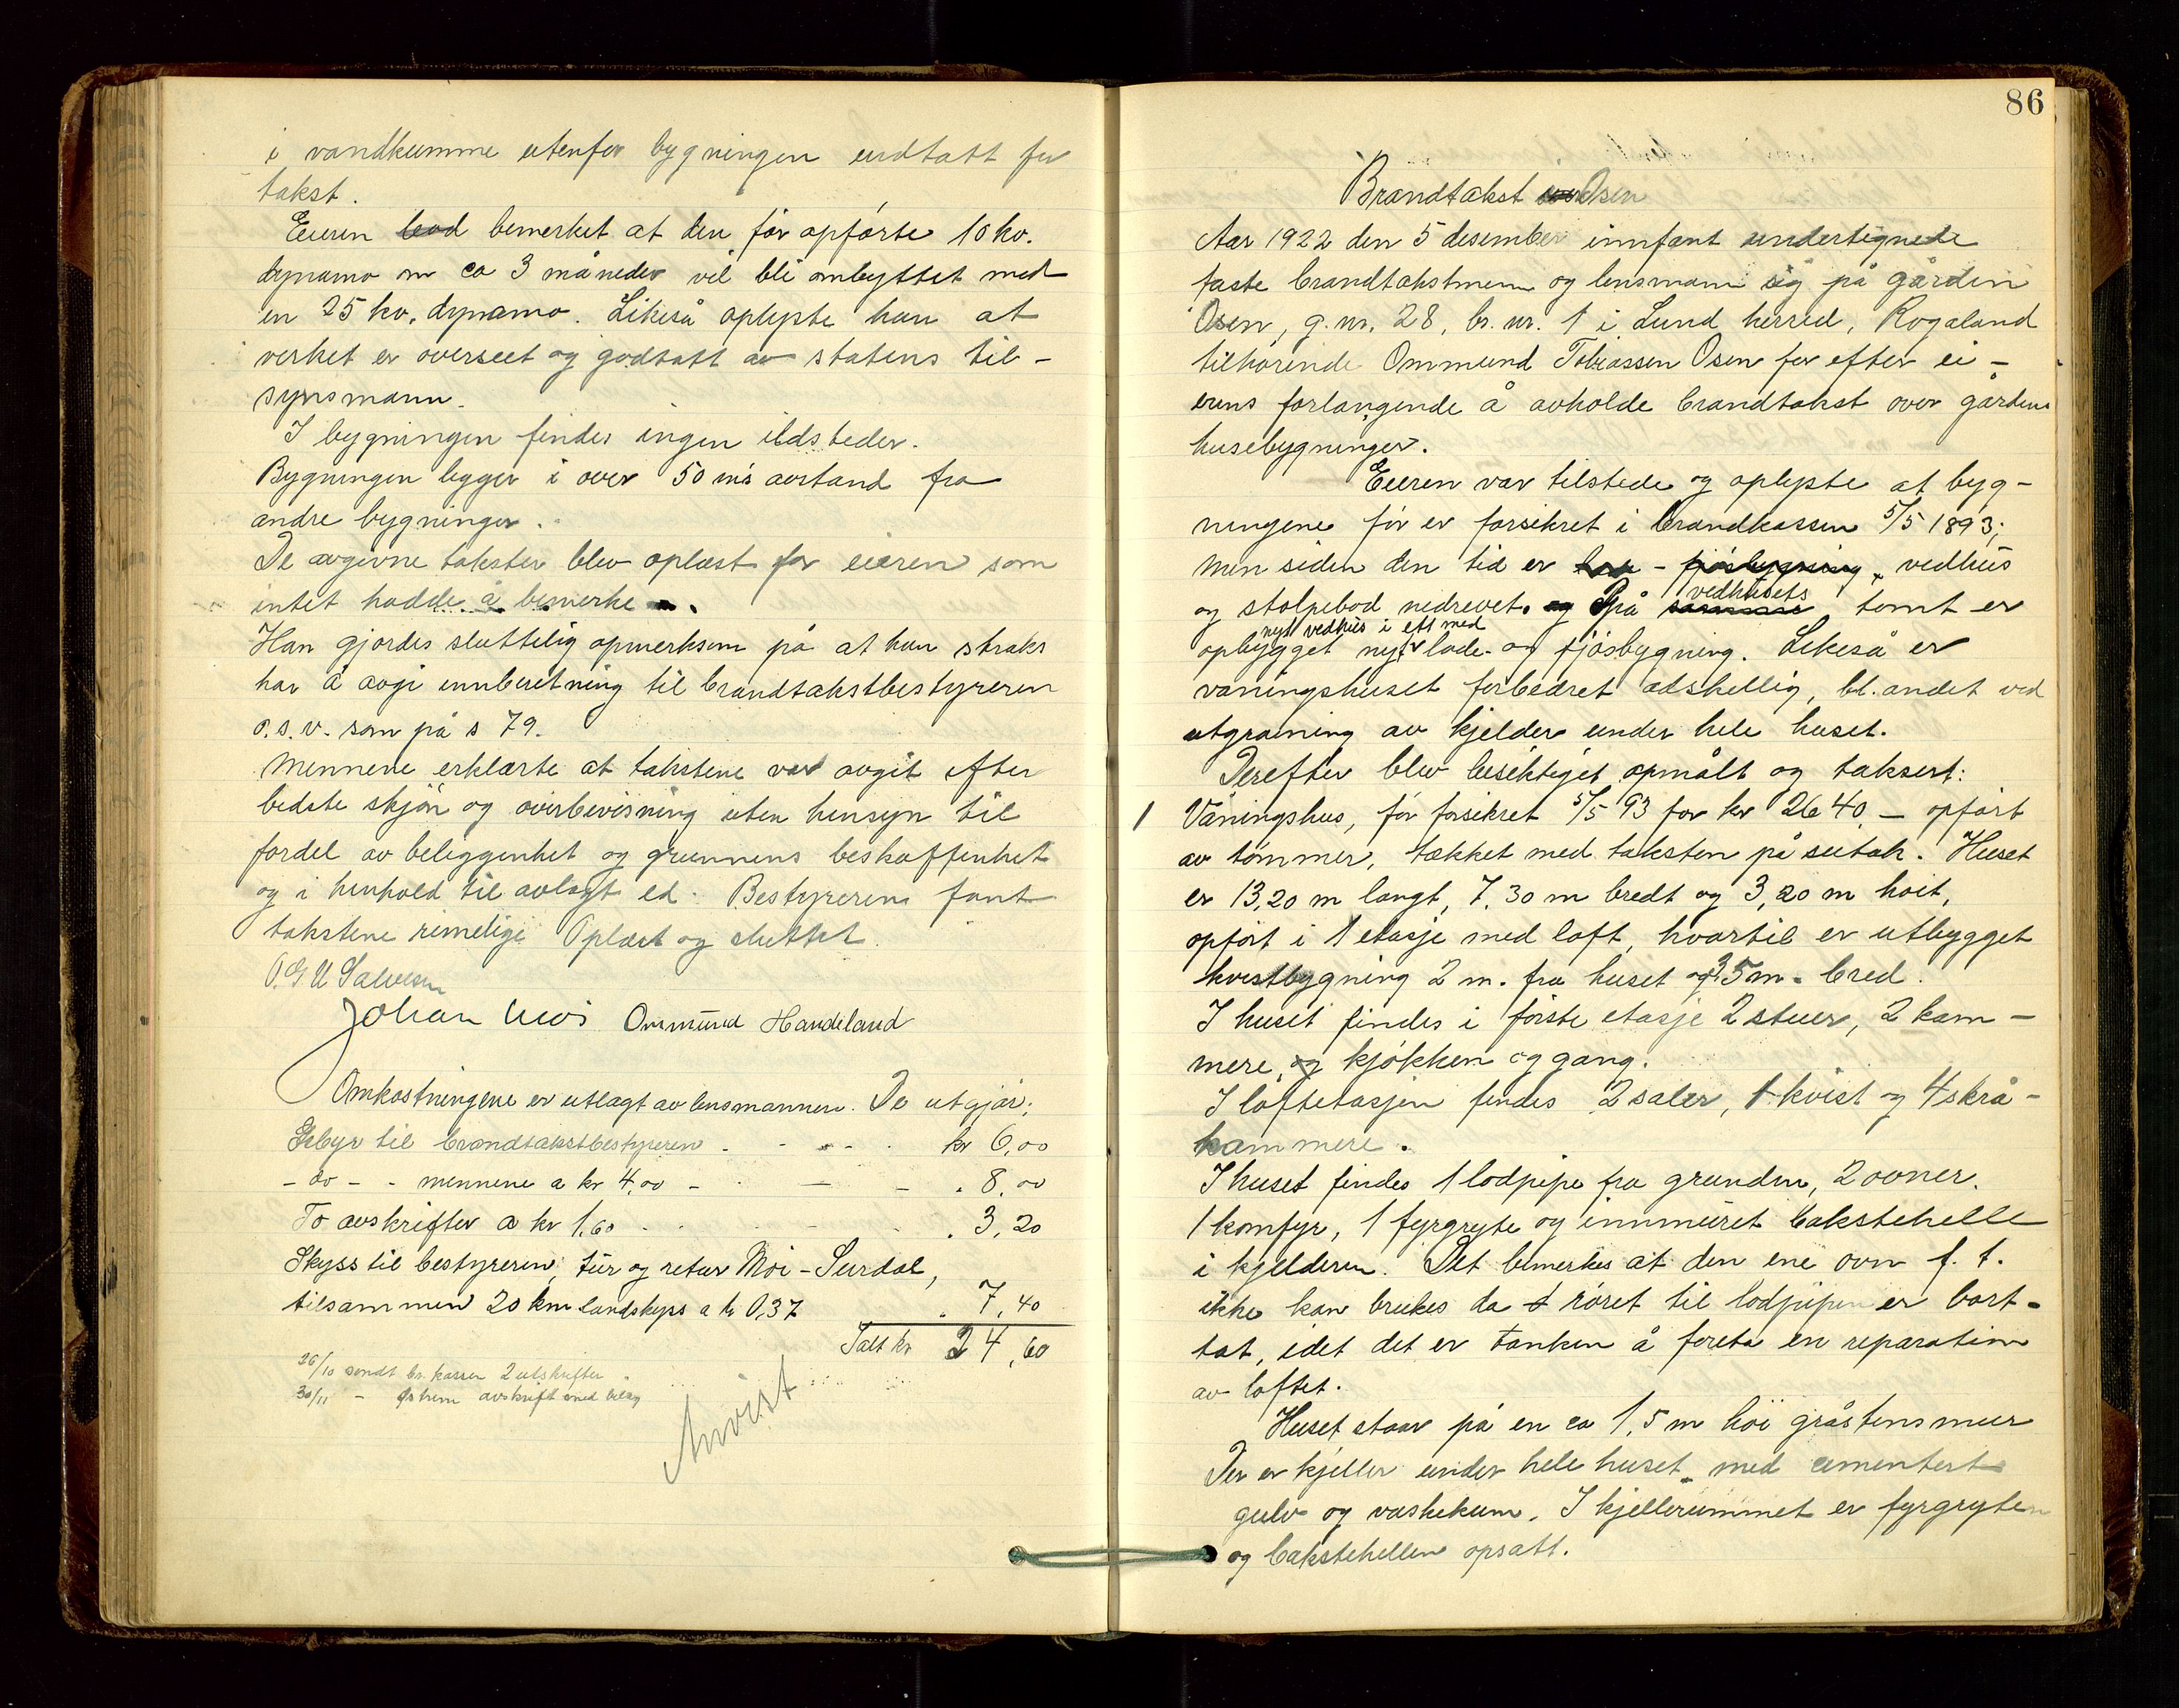 i vandkumme utenfor bygningen undtatt for
takst.
Eieren bemerket at den før opførte 10 kv.
dynamo om ca 3 måneder vil bli ombyttet med
en 25 kv. dynamo. Likeså oplyste han at
verket er overseet og godtatt av statens til-
synsmann.
I bygningen findes ingen ildsteder.
Bygningen ligger i over 50 m's avstand fra
andre bygninger.
De avgivne takster blev oplæst for eieren som
intet hadde å bemerke.
Han gjordes sluttelig opmerksom på at han straks
har å avgi innberetning til brandtakstbestyreren
o.s.v. som på s 79.
Mennene erklærte at takstene var avgit efter
bedste skjøn og overbevisning uten hensyn til
fordel av beliggenhet og grunnens beskaffenhet
og i henhold til avlagt ed. Bestyreren fant
takstene rimelige Oplæst og sluttet.
Salvesen
Johan Moi Ommund Handeland
Omkostningene er utlagt av lensmannen. De utgjør:
Gebyr til brandtakstbestyreren - - - - kr 6,00
- do - - mennene a kr 4,00 - - - - " 8,00
To avskrifter a kr 1,60 - - - - " 3,20
Skyss til bestyreren, tur og retur Moi - Surdal,
tilsammen 20 km landskyss a kr 0,37 " 7,40
Ialt kr 24,60
26/10 sendt br. kassen 2 utskrifter
30/11 - avskrift med bilag
Anvist
86
Brandtakst Osen
Aar 1922 den 5 desember innfant undertegnede
faste brandtakstmenn og lensmann sig på gården
Osen, g.nr. 28, br. nr. 1 i Lund herred, Rogaland
tilhørende Ommund Tobiassen Osen for efter ei-
erens forlangende å avholde brandtakst over gårdens
husebygninger.
Eieren var tilstede og oplyste at byg-
ningene før er forsikret i brandkassen 5/5 1893;
men siden den tid er - fjøsbygning, vedhus
og stolpebod nedrevet. og På samme vedhusets tomt er
opbygget nyt vedhus i ett med ny lade- og fjøsbygning. Likeså er
våningshuset forbedret adskillig, bl. andet ved
utgravning av kjelder under hele huset.
Derefter blev besiktiget opmålt og taksert:
1 Våningshus, før forsikret 5/5 93 for kr 2640 - opført
av tømmer, tækket med taksten på sutak. Huset
er 13,20 m langt, 7,30 m bredt og 3,20 m høit,
opført i 1 etasje med loft, hvortil er utbygget
kvistbygning 2 m. fra huset og 3,5 m. bred.
I huset findes i første etasje 2 stuer, 2 kam-
mere, og kjøkken og gang.
I loftetasjen findes 2 saler, 1 kvist og 4 skrå-
kammere.
I huset findes 1 lodpipe fra grunden, 2 ovner.
1 komfyr, 1 fyrgryte og innmuret bakstehelle
i kjelderen. Det bemerkes at den ene ovn f. t.
ikke kan brukes da røret til lodpipen er bort-
tat, idet det er tanken å foreta en reparation
av loftet.
Huset staar på en ca 1,5 m høi gråstensmur
Der er kjeller under hele huset med cementert
gulv og vaskekum. I kjellerummet er fyrgryten
og bakstehellen opsatt.